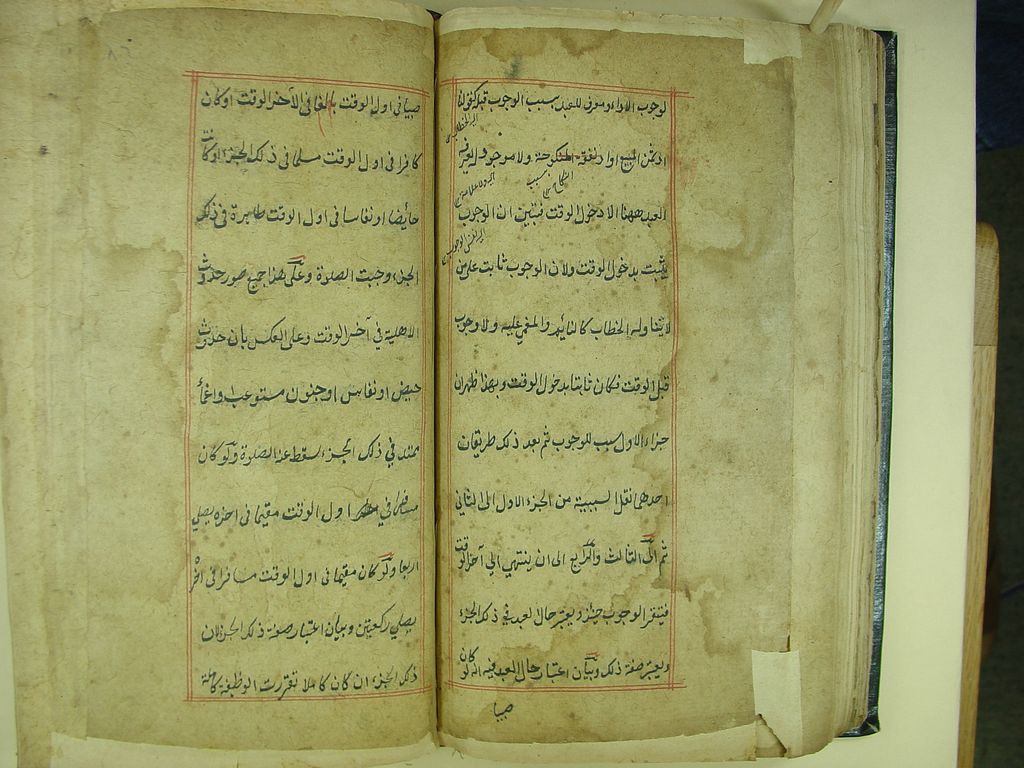 لوجوب الاداء ومعرف للعبد سبب الوجوب قبله كقولنا
اد ثمن المبيع واد نفقة المنكوحة ولا موجود يعرف
العبد ههنا الا دخول الوقت فتبين ان الوجوب
يثبت بدخول الوقت ولان الوجوب ثابت على من
لا يتناوله الخطاب كالنائم والمغمى عليه ولا وجوب
قبل الوقت فكان ثابتا بدخول الوقت وبهذا ظهر ان
جزاء الاول سبب للوجوب ثم بعد ذلك طريقان
احدهما نقل السببية من الجزء الاول الى الثاني
ثم الى الثالث والرابع الى ان ينتهي الى آخر الوقت
فيتقرر الوجوب حينئذ ويعتبر حال العبد في ذلك الجزء
ويعتبر صفة ذلك وبيان اعتبار حال العبد فيه انه لو كان
صبيا
صبيا في اول الوقت بالغا في الآخر الوقت او كان
كافرا في اول الوقت مسلما في ذلك الجزء او كانت
حائضا او نفاسا في اول الوقت طاهرة في ذلك
الجزء وجبت الصلوة وعلى هذا جميع صور حدوث
الاهلية في آخر الوقت وعلى العكس بان حدث
حيض او نفاس او جنون مستوعب واغماء
ممتد في ذلك الجزء لسقط عنه الصلوة ولو كان
مسافرا في اول الوقت مقيما في اخره يصلي
اربعا ولو كان مقيما في اول الوقت مسافرا في آخره
يصلي ركعتين وبيان اعتبار صفة ذلك الجزء ان
ذلك الجزء ان كان كاملا تقررت الوظيفة كاملة